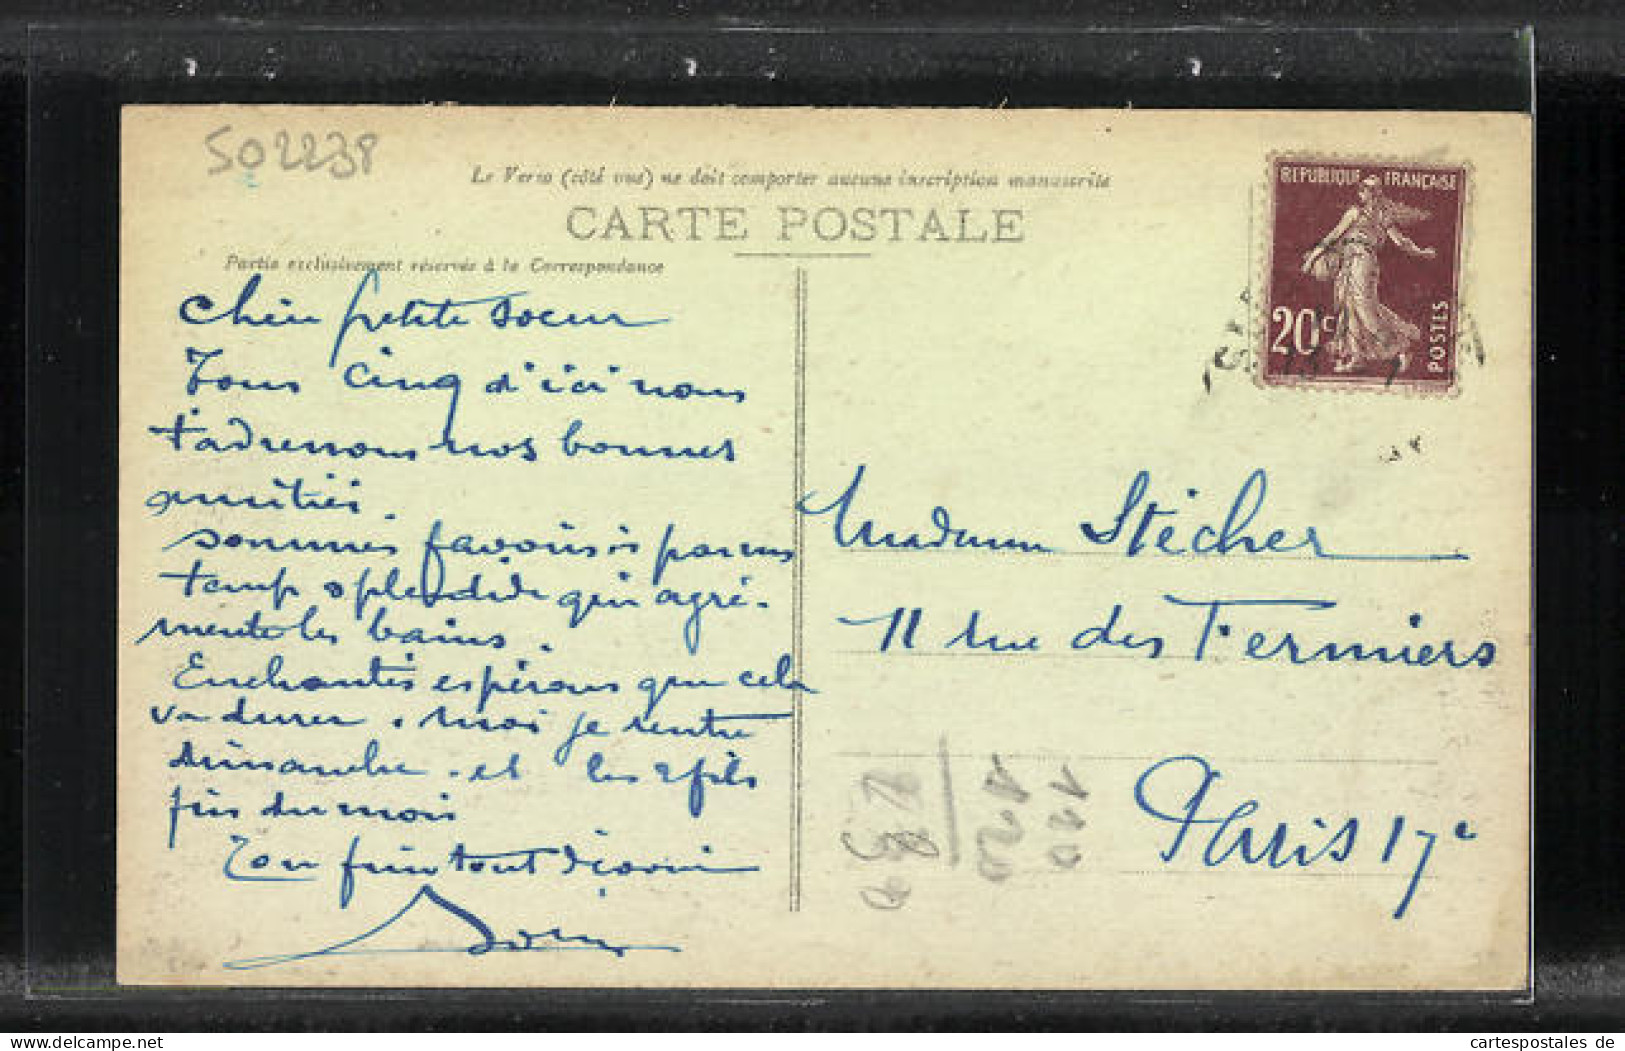 502238
Le Verso (côté vue) ne doit comporter aucune inscription manuscrite
CARTE POSTALE
Partie exclusivement réservée à la Correspondance
REPUBLIQUE FRANÇAISE
20c
POSTES
Chère petite soeur
Tous cinq d'ici nous
t'adressons nos bonnes
amitiés.
sommes favorisés par un
temps splendide qui agré-
mente les bains.
Enchantés espérons que cela
va durer. moi je rentre
dimanche. et les 2 fils
fin du mois
Ton frère tout dévoué
Madame Stécher
11 rue des Fermiers
Paris 17e
cartespostales de